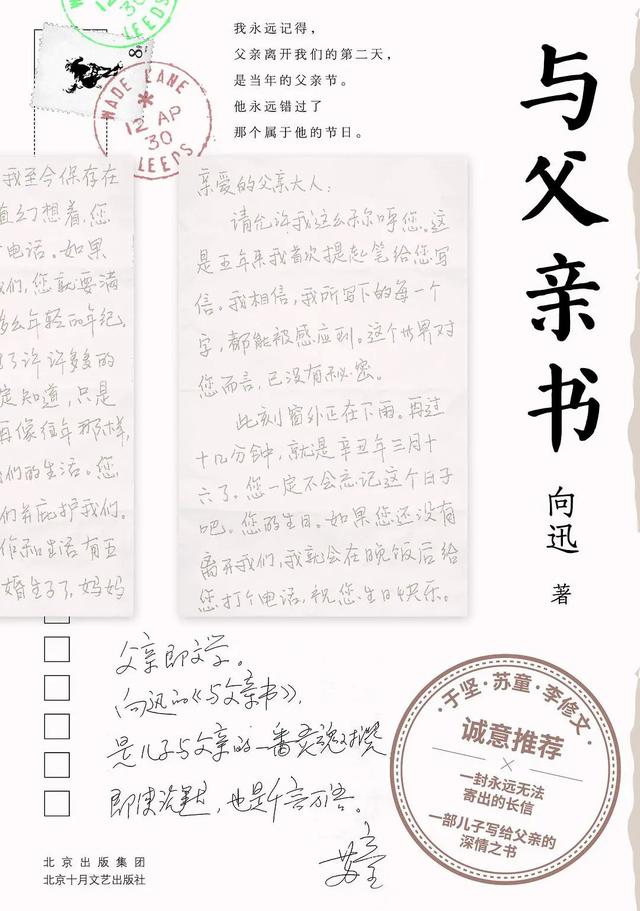 我永远记得，
父亲离开我们的第二天，
是当年的父亲节。
他永远错过了
那个属于他的节日。
与父亲书
向迅 著
8
LEEDS
WADE LANE
12 AP
30
LEEDS
我至今保存在
直幻想着，您
电话。如果
们，您就要满
多么年轻的年纪。
了许许多多的
定知道，只是
再像往年那样，
们的生活。您
们并庇护我们。
作和生活有五
婚生子了，妈妈
亲爱的父亲大人：
请允许我这么称呼您。这
是五年来我首次提起笔给您写
信。我相信，我所写下的每一个
字，都能被感应到。这个世界对
您而言，已没有秘密。
此刻窗外正在下雨。再过
十几分钟，就是辛丑年三月十
六了。您一定不会忘记这个日子
吧。您的生日。如果您还没有
离开我们，我就会在晚饭后给
您打个电话，祝您生日快乐。
父亲即文学。
向迅的《与父亲书》，
是儿子与父亲的一番灵魂对谈
即使沉默，也是千言万语。
苏童
于坚·苏童·李修文
诚意推荐
一封永远无法
寄出的长信
一部儿子写给父亲的
深情之书
北京出版集团
北京十月文艺出版社